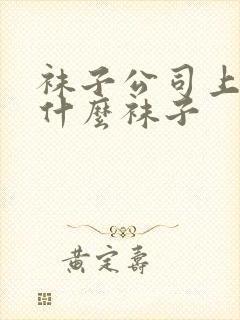 袜子公司上
什麼袜子
黄定寿